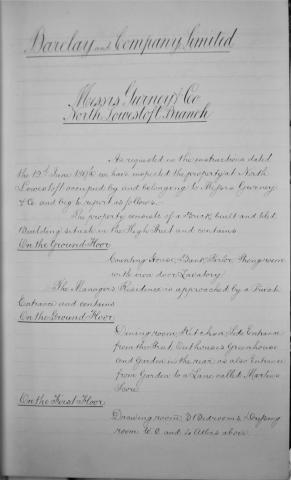 Barclay and Company Limited
Messrs Gurney & Co
North Lowestoft Branch
As requested in the instructions dated
the 19th June 1896 we have inspected the property at North
Lowestoft occupied by and belonging to Messrs Gurney
& Co and beg to report as follows.
The property consists of a Brick built and tiled
Building situate in the High Street and contains
On the Ground Floor
Counting House, Bank Parlor, Strongroom
with iron door Lavatory.
The Managers Residence is approached by a Private
Entrance and contains
On the Ground Floor
Dining room, Kitchen, Side Entrance
from the Street, Outhouses Greenhouse
and Garden in the rear, as also Entrance
from Garden to a Lane called Martins
Score.
On the First Floor
Drawing room, 3 Bedrooms, Dressing
room W.C. and 4 Attics above